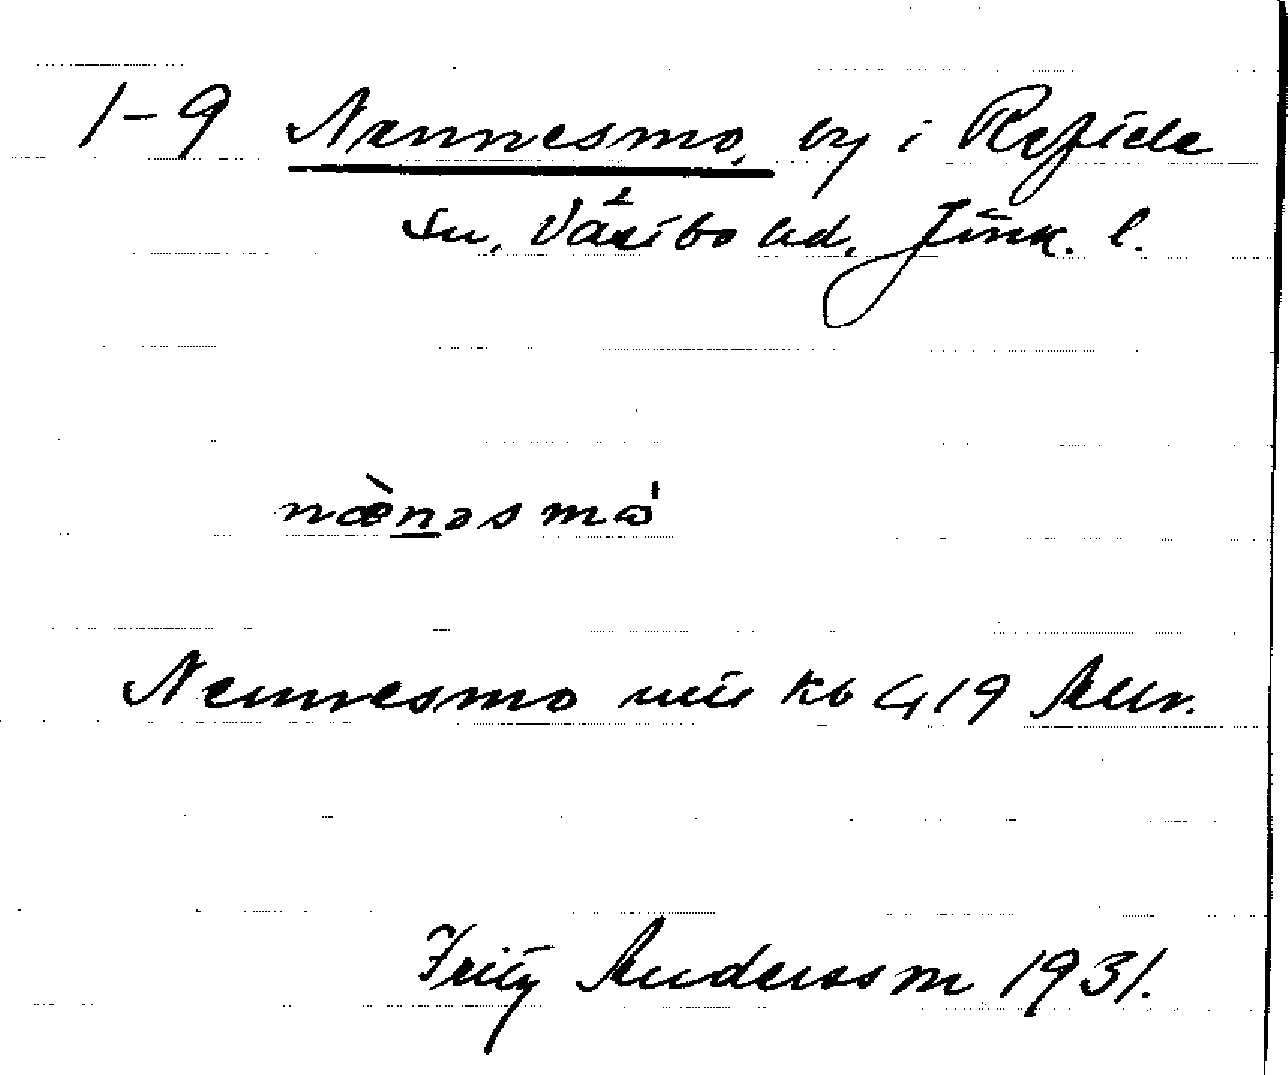 1-9 Nennesmo, by i Reftele
sn, Västbo hd, Jönk. l.
næ̀nəsmɷ
Nennesmo mtl kb 419 Allr.
Fritz Andersson 1931.